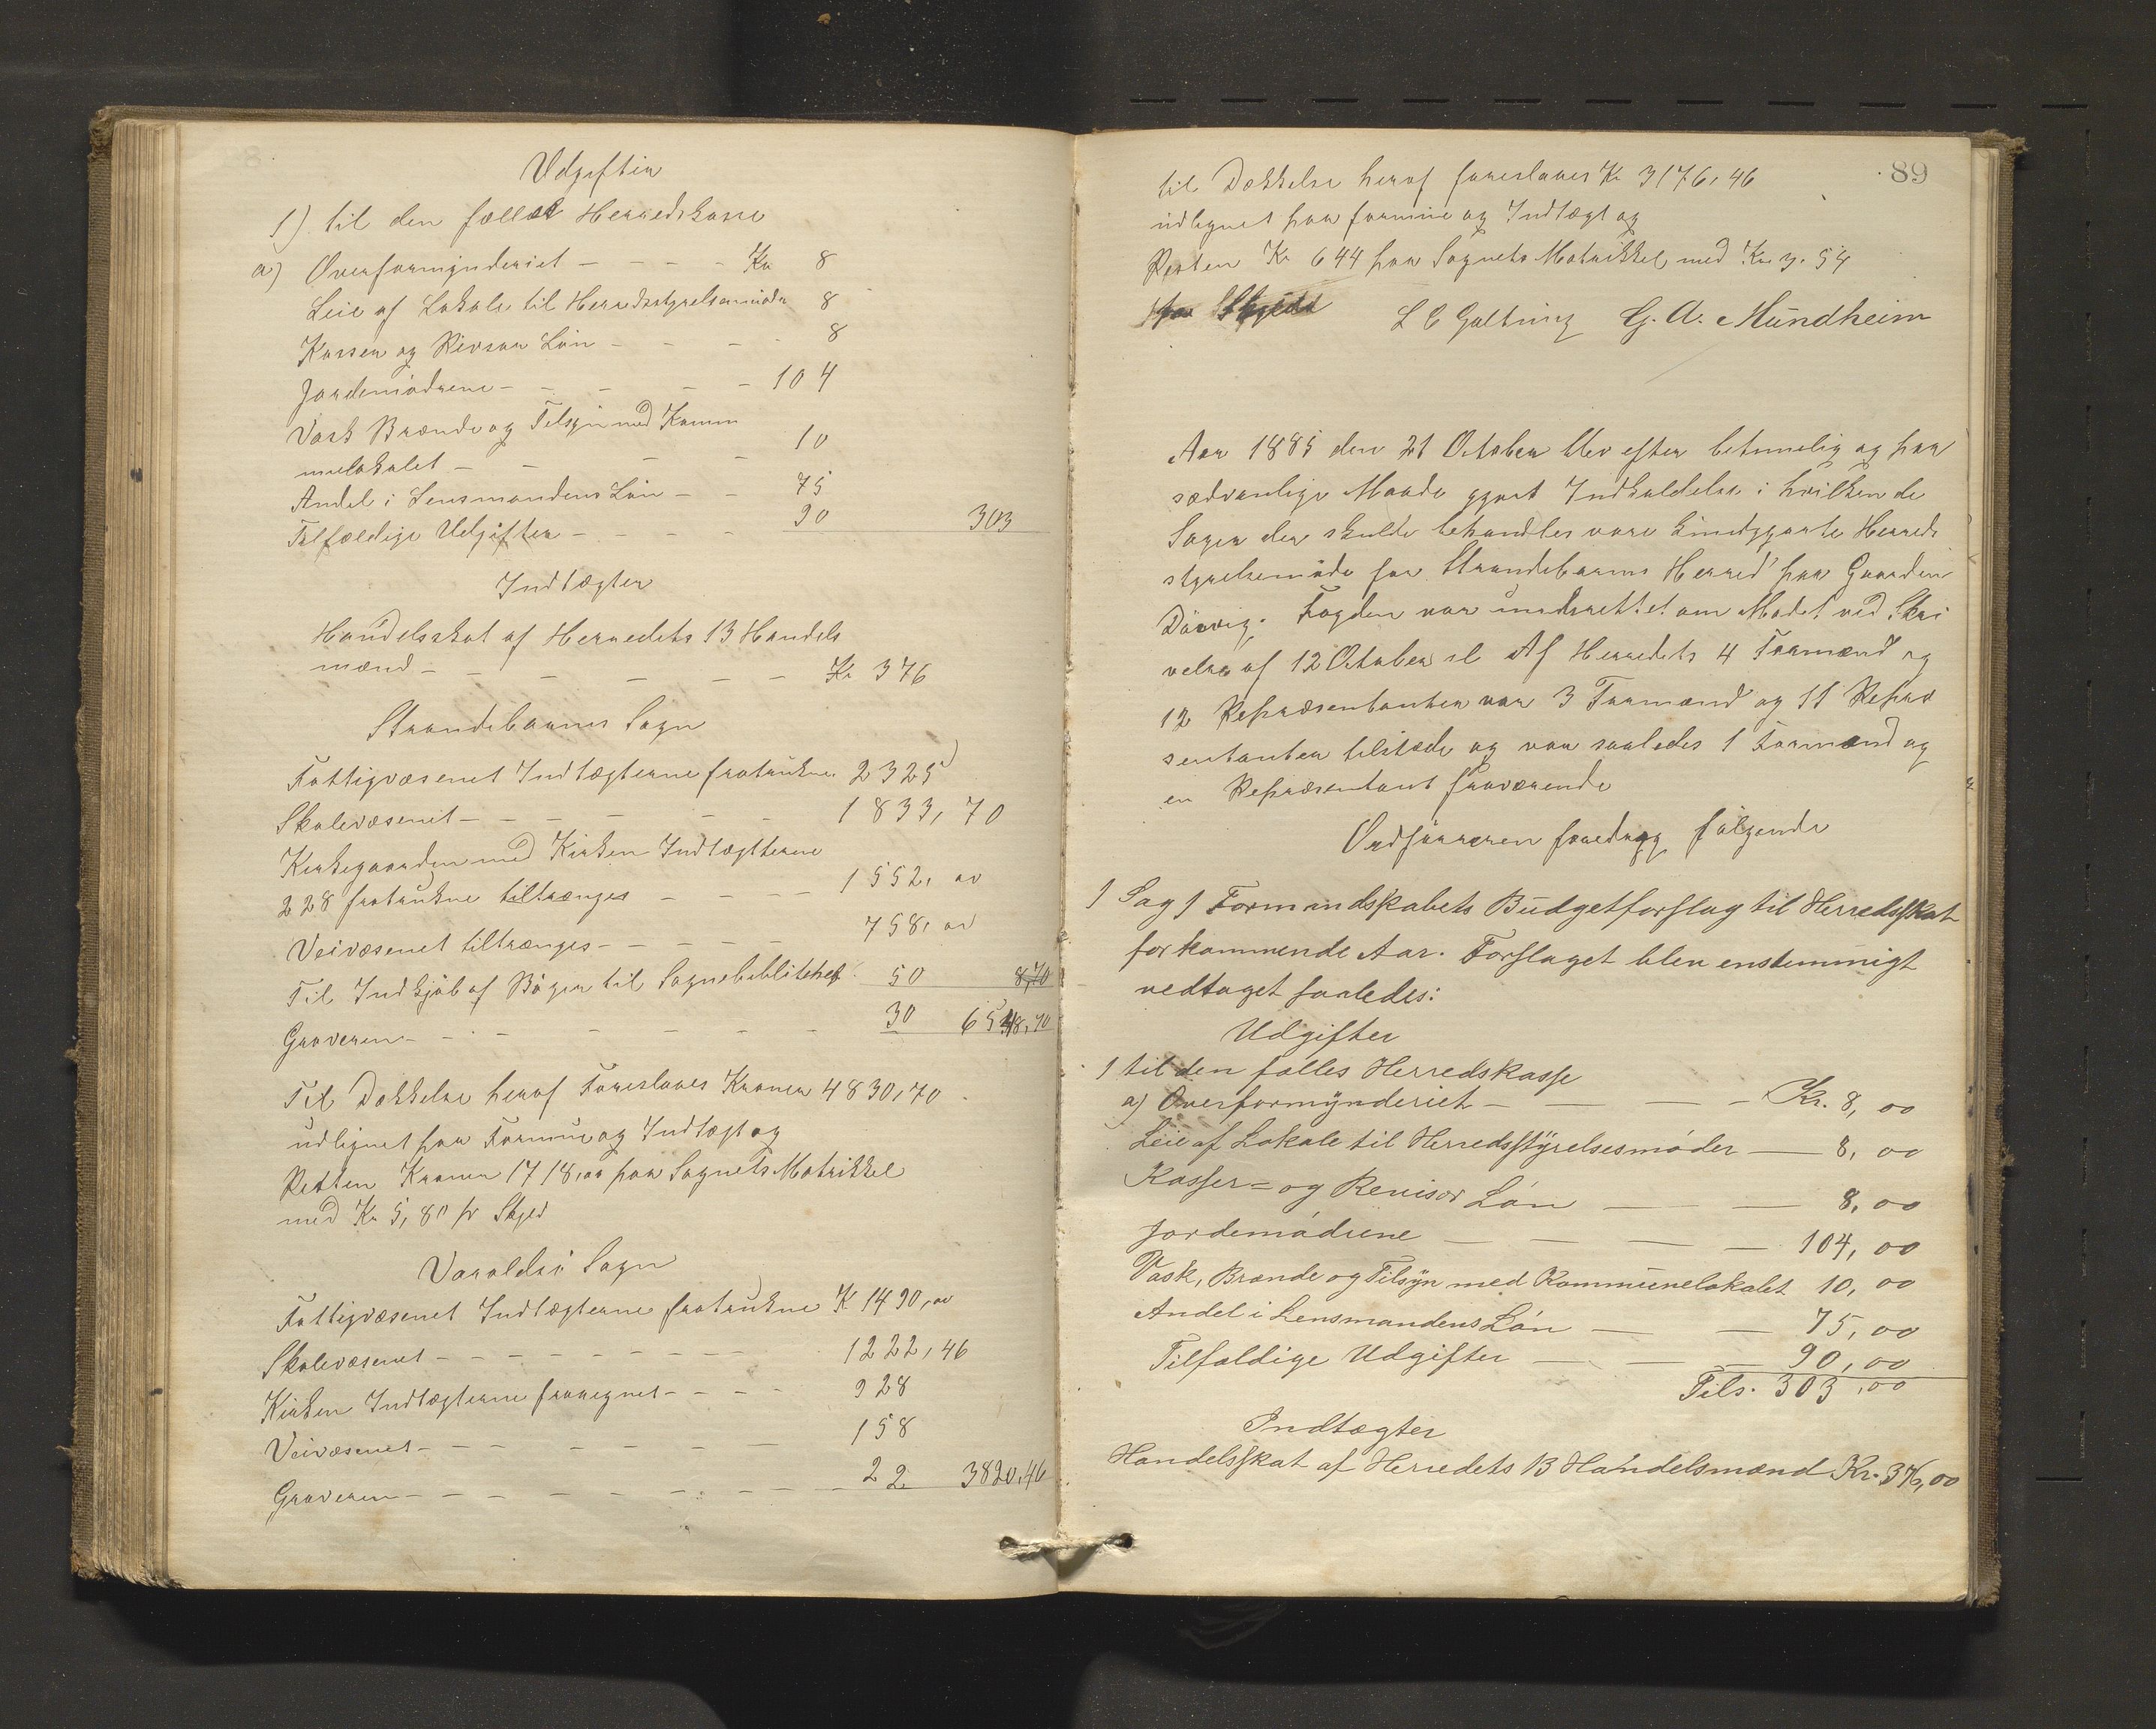 Udgifter
1) til den fælles Herredskasse
a) Overformynderiet - - - - Kr 8
Leie af Lokale til Herredsstyrelsemøder 8
Kasser og Revisor Løn - - - - 8
Jordemødrene - - - - - 104
Vask Brænde og Tilsyn med Komm
unelokalet - - - - 10
Andel i Lensmandens Løn - - 75
Tilfældige Udgifter - - - - 90 303
Indtægter
Handelsskat af Herredets 13 Handels
mænd - - - - - - Kr 376
Strandebarms Sogn
Fattigvæsenet Indtægterne fratrukne 2325
Skolevæsenet - - - - - - 1833,70
Kirkegaarden med Kirken Indtægterne
228 fratrukne tiltrænges - - - 1552,00
Veivæsenet tiltrænges - - - - - 758,00
Til Indkjøb af Bøger til Sognebiblitehet 50 8,70
Graveren - - - - - - 30 6548,70
Til Dækkelse heraf Foreslaaes Kroner 4830,70
udlignet paa Formue og Indtægt og
Resten Kroner 1718,00 paa Sognets Matrikkel
med Kr 5,80 pr Skyld
Varaldsø Sogn
Fattigvæsenet Indtægterne fratrukne K 1490,00
Skolevæsenet - - - - - - - - 1222,46
Kirken Indtægterne fraregnet - - - - 928
Veivæsenet - - - - - - - 158
Graveren - - - - - - - - - 22 3820,46
89
til Dækkelse heraf foreslaaes Kr 3176,46
udlignet paa formue og Indtægt og
Resten Kr 644 paa Sognets Matrikkel med Kr 3.54
L C Galtung G. A. Mundheim
Aar 1885 den 21 October blev efter betimelig og paa
sædvanlige Maade gjort Indkaldelse i hvilken de
Sager der skulde behandles vare kundgjorte Herreds
styrelsemøde for Strandebarms Herred paa Gaarden
Fogden var underrettet om Mødet ved Skri
velse af 12 October sl Af Herredets 4 Formænd og
12 Repræsentanter var 3 Formænd og 11 Repræ
sentanter tilstæde og var saaledes 1 Formand og
en Repræsentant fraværende
Ordføreren foredrog følgende
1 Sag 1 Formandskabets Budgetforslag til Herredsskat
for kommende Aar. Forslaget blev enstemmigt
vedtaget saaledes:
Udgifter
1 til den fælles Herredskasse
a) Overformynderiet - - - Kr. 8,00
Leie af Lokale til Herredsstyrelsesmøder - 8,00
Kasser- og Revisor Løn - - 8,00
Jordemødrene - - - - 104,00
Vask, Brænde og Tilsyn med Kommunelokalet 10,00
Andel i Lensmandens Løn - - 75,00
Tilfældige Udgifter - - - 90,00
Tils. 303,00
Indtægter
Handelsskat af Herredets 13 Handelsmænd Kr. 376,00